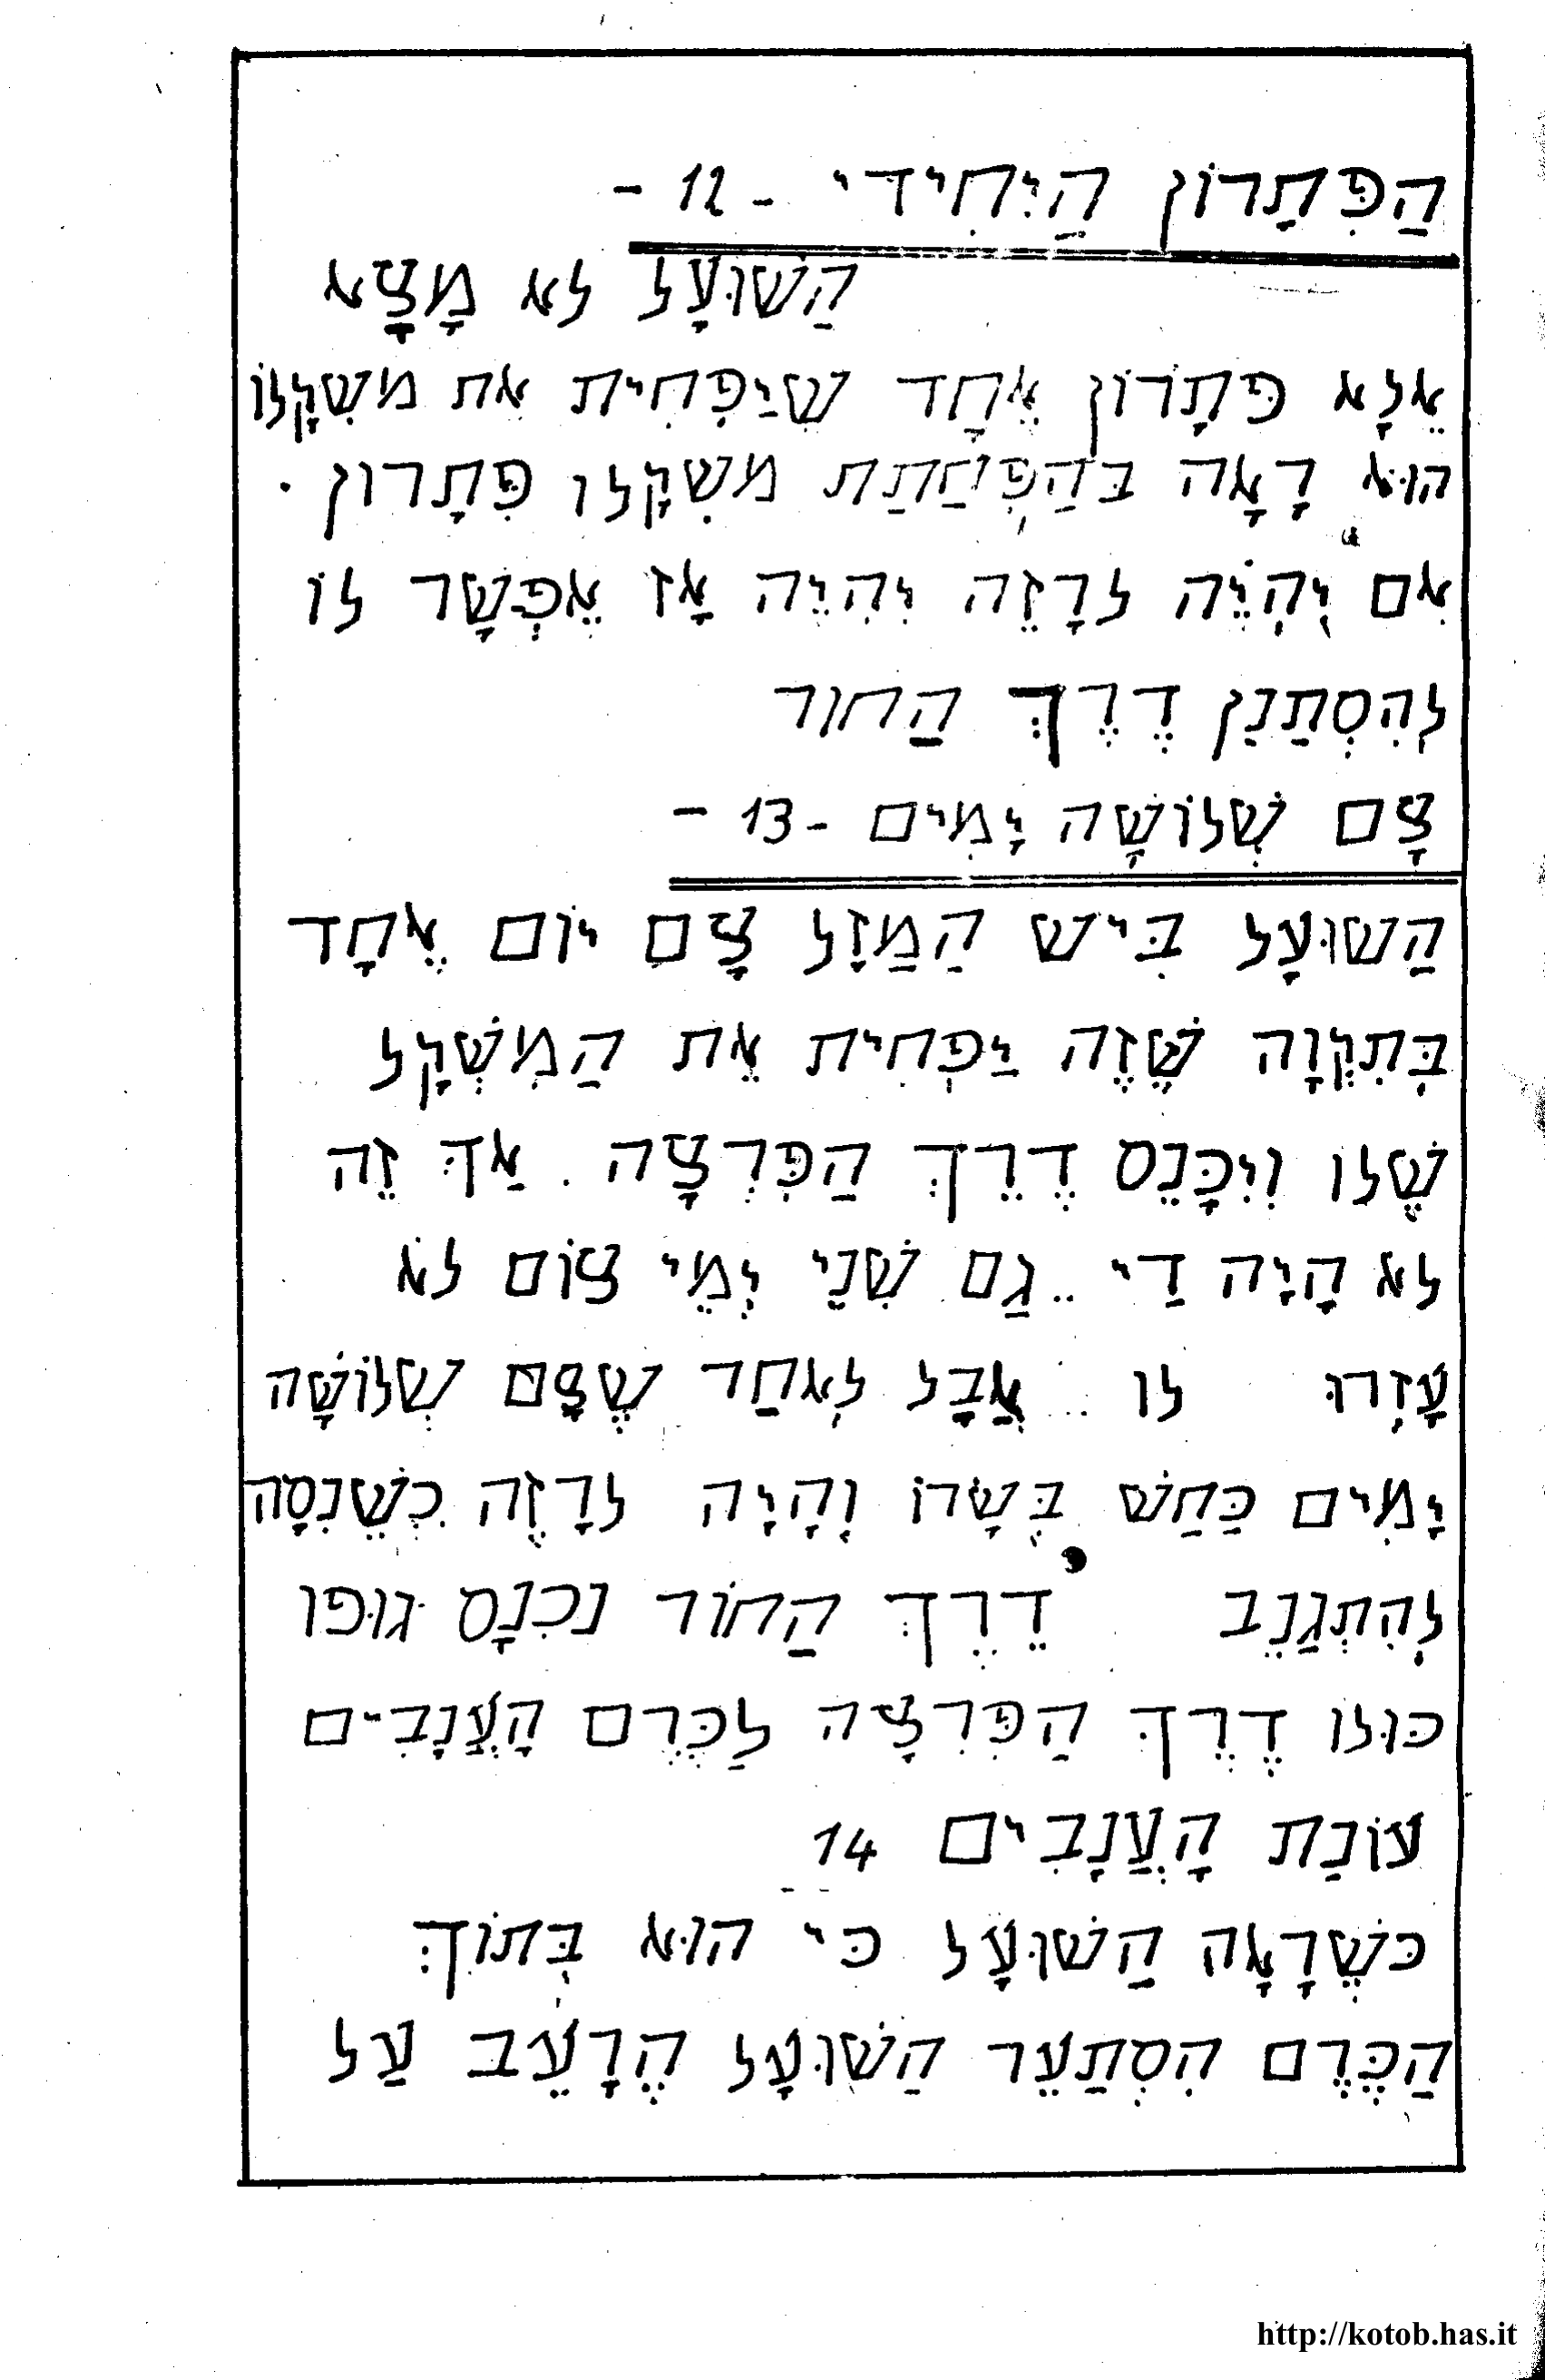 הַפִּתָרוֹן הַיְחִידִי - 12 -
הַשׁוּעָל לא מָצָא
אֶלָא פתָרוֹן אֶחָד שִׁיַפְחִית אֵת משִׁקָלוֹ
הוּא רָאָה בּהַפְחַתַת משִׁקָלו פִּתָרון .
אִם יְהְיֶה לרָזֶה יִהִיֶה אָז אֶפְשָׁר לוֹ
לְהִסְתַנֵן דֶרֶךְ הַחור
צָם שְׁלוֹשָׁה יָמִים - 13 -
הַשׁוּעָל בִּיש הַמַזָל צָם יוֹם אֶחָד
בְּתִקְוָה שֶׁזֶה יַפְחִית אֶת הַמִשְׁקָל
שֶׁלו וְיִכָּנֵס דֶרֶךְ הַפִּרְצָה . אַךְ זֶה
לא הָיָה דַי .. גַם שְׁנֵי יְמֵי צוֹם לֹא
עָזְרוּ לו .. אֲבָל לְאחַר שֶׁצָם שְׁלוֹשָׁה
יָמִים כַּחַשׁ בְּשָׂרוֹ וְהָיָה לרָזֶה כְּשֶׁנִסָה
לְהִתְגַנֵב דֶרֶךְ הַחוֹר נכִנָס גוּפו
כּוּלו דֶרֶךְ הַפִּרִצָה לַכֶּרֶם הָעֲנָבִים
עוֹנַת הָעֲנָבִים 14
כּשֶׁרָאָה הַשׁוּעָל כִּי הוּא בְּתוֹךְ
הַכֶּרֶם הִסְתַעֵר הַשׁוּעָל הֶרָעֵב עַל
http://kotob.has.it